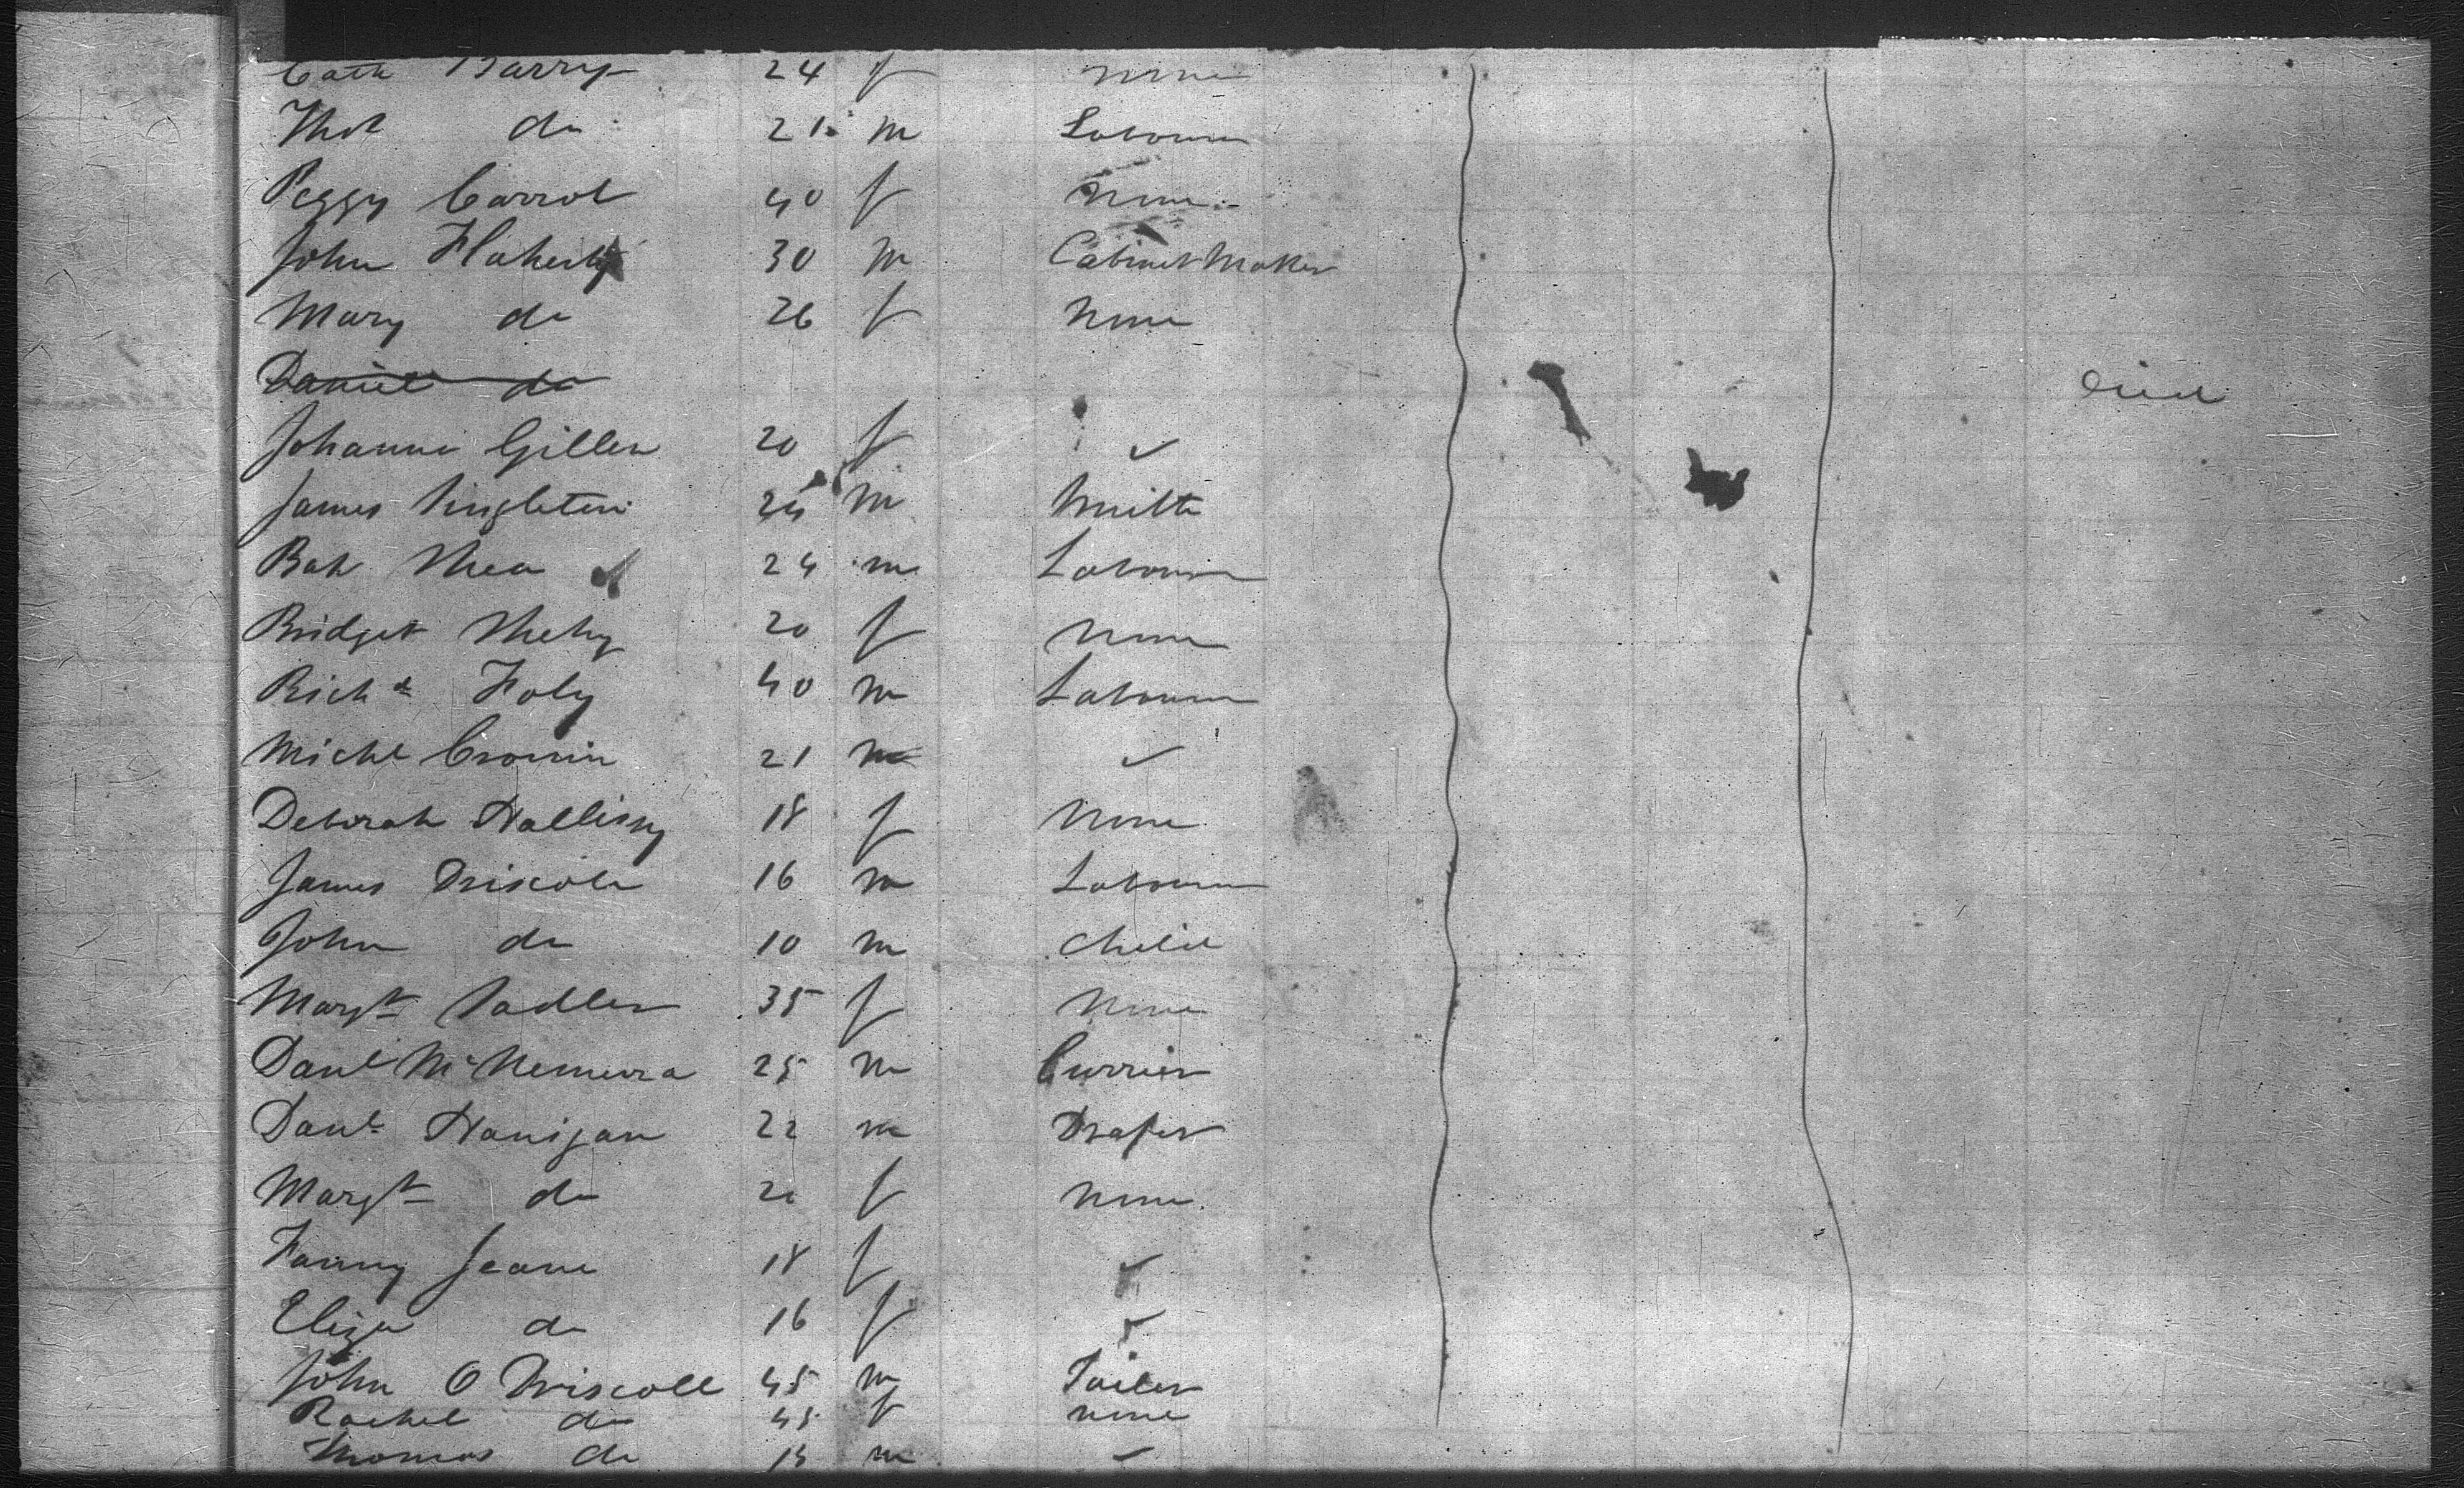 Cath Barry 24 f none
Thos do 21 m Labourer
Peggy Carrol 40 f None
John Flaherty 30 m Cabinet Maker
Mary do 26 f None
Daniel do died
Johanna Gillen 20 f ✓
James Singleton 24 m Smith
Bat Shea 24 m Labourer
Bridget Shehy 20 f None
Richd Foly 40 m Labourer
Michl Cronin 21 m ✓
Deborah Hallissy 18 f None
James Driscoll 16 m Labourer
John do 10 m child
Margt Sadler 35 f None
Danl McNemera 25 m Currier
Danl Hanigan 22 m Draper
Margt do 20 f None
Fanny Jeane 18 f ✓
Eliza do 16 f ✓
John O Driscoll 45 m Tailer
Rachel do 45 f none
Thomas do 15 m ✓